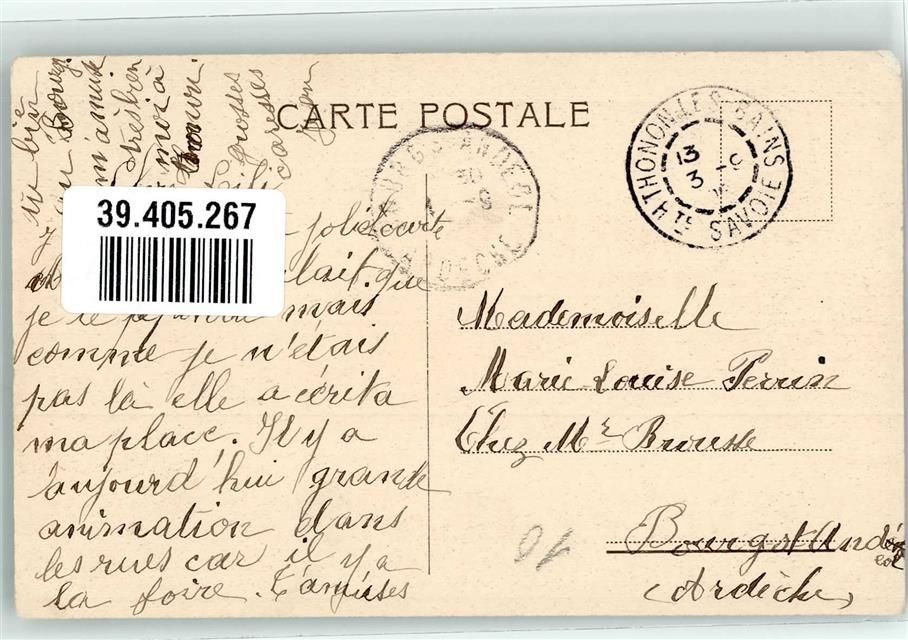 CARTE POSTALE
39.405.267
THONON-LES-BAINS
13
3 -9
HTE SAVOIE
BOURG-ST-ANDEOL
30
-9
ARDECHE
jolie carte
lait que
je te mais
comme je n'étais
pas là elle a écrit a
ma place. Il y a
aujourd'hui grande
animation dans
les rues car il y a
la foire. T'amuses
tu bien
Bourg.
m'amuse
très bien
moi à
Grosses
caresses
Mademoiselle
Marie Louise Perrin
Chez Mr Brousse
Bourg st Andéol
(Ardèche)
10